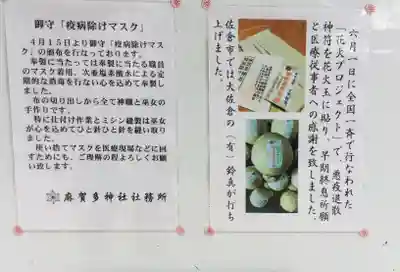 御守「疫病除けマスク」
４月１５より御守「疫病除けマスク」の頒布を行なっております。
奉製に当たっては奉製に当たる職員のマスク着用、次亜塩素酸水による定期的な消毒を行ない心を込めて奉製しました。
布の切り出しから全て神職と巫女の手作りです。
特に仕付け作業とミシン縫製は巫女が心を込めてひと針ひと針を縫い取りました。
使い捨てマスクを医療現場などに回すためにも、ご理解の程よろしくお願い致します。
麻賀多神社社務所
六月一日に全国一斉で行なわれた
「花火プロジェクト」で、悪疫退散
神符を花火玉に貼り、早期終息祈願
と医療従事者への感謝を致しました。
佐倉市では大佐倉の（有）鈴真が打ち
上げました。